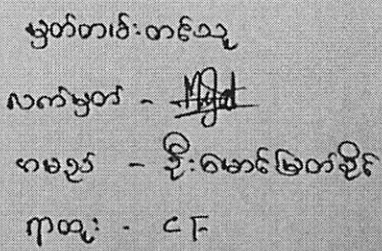 မှတ်တမ်းတင်သူ
လက်မှတ် -
အမည် - ဦးမောင်မြတ်ခိုင်
ရာထူး - CF